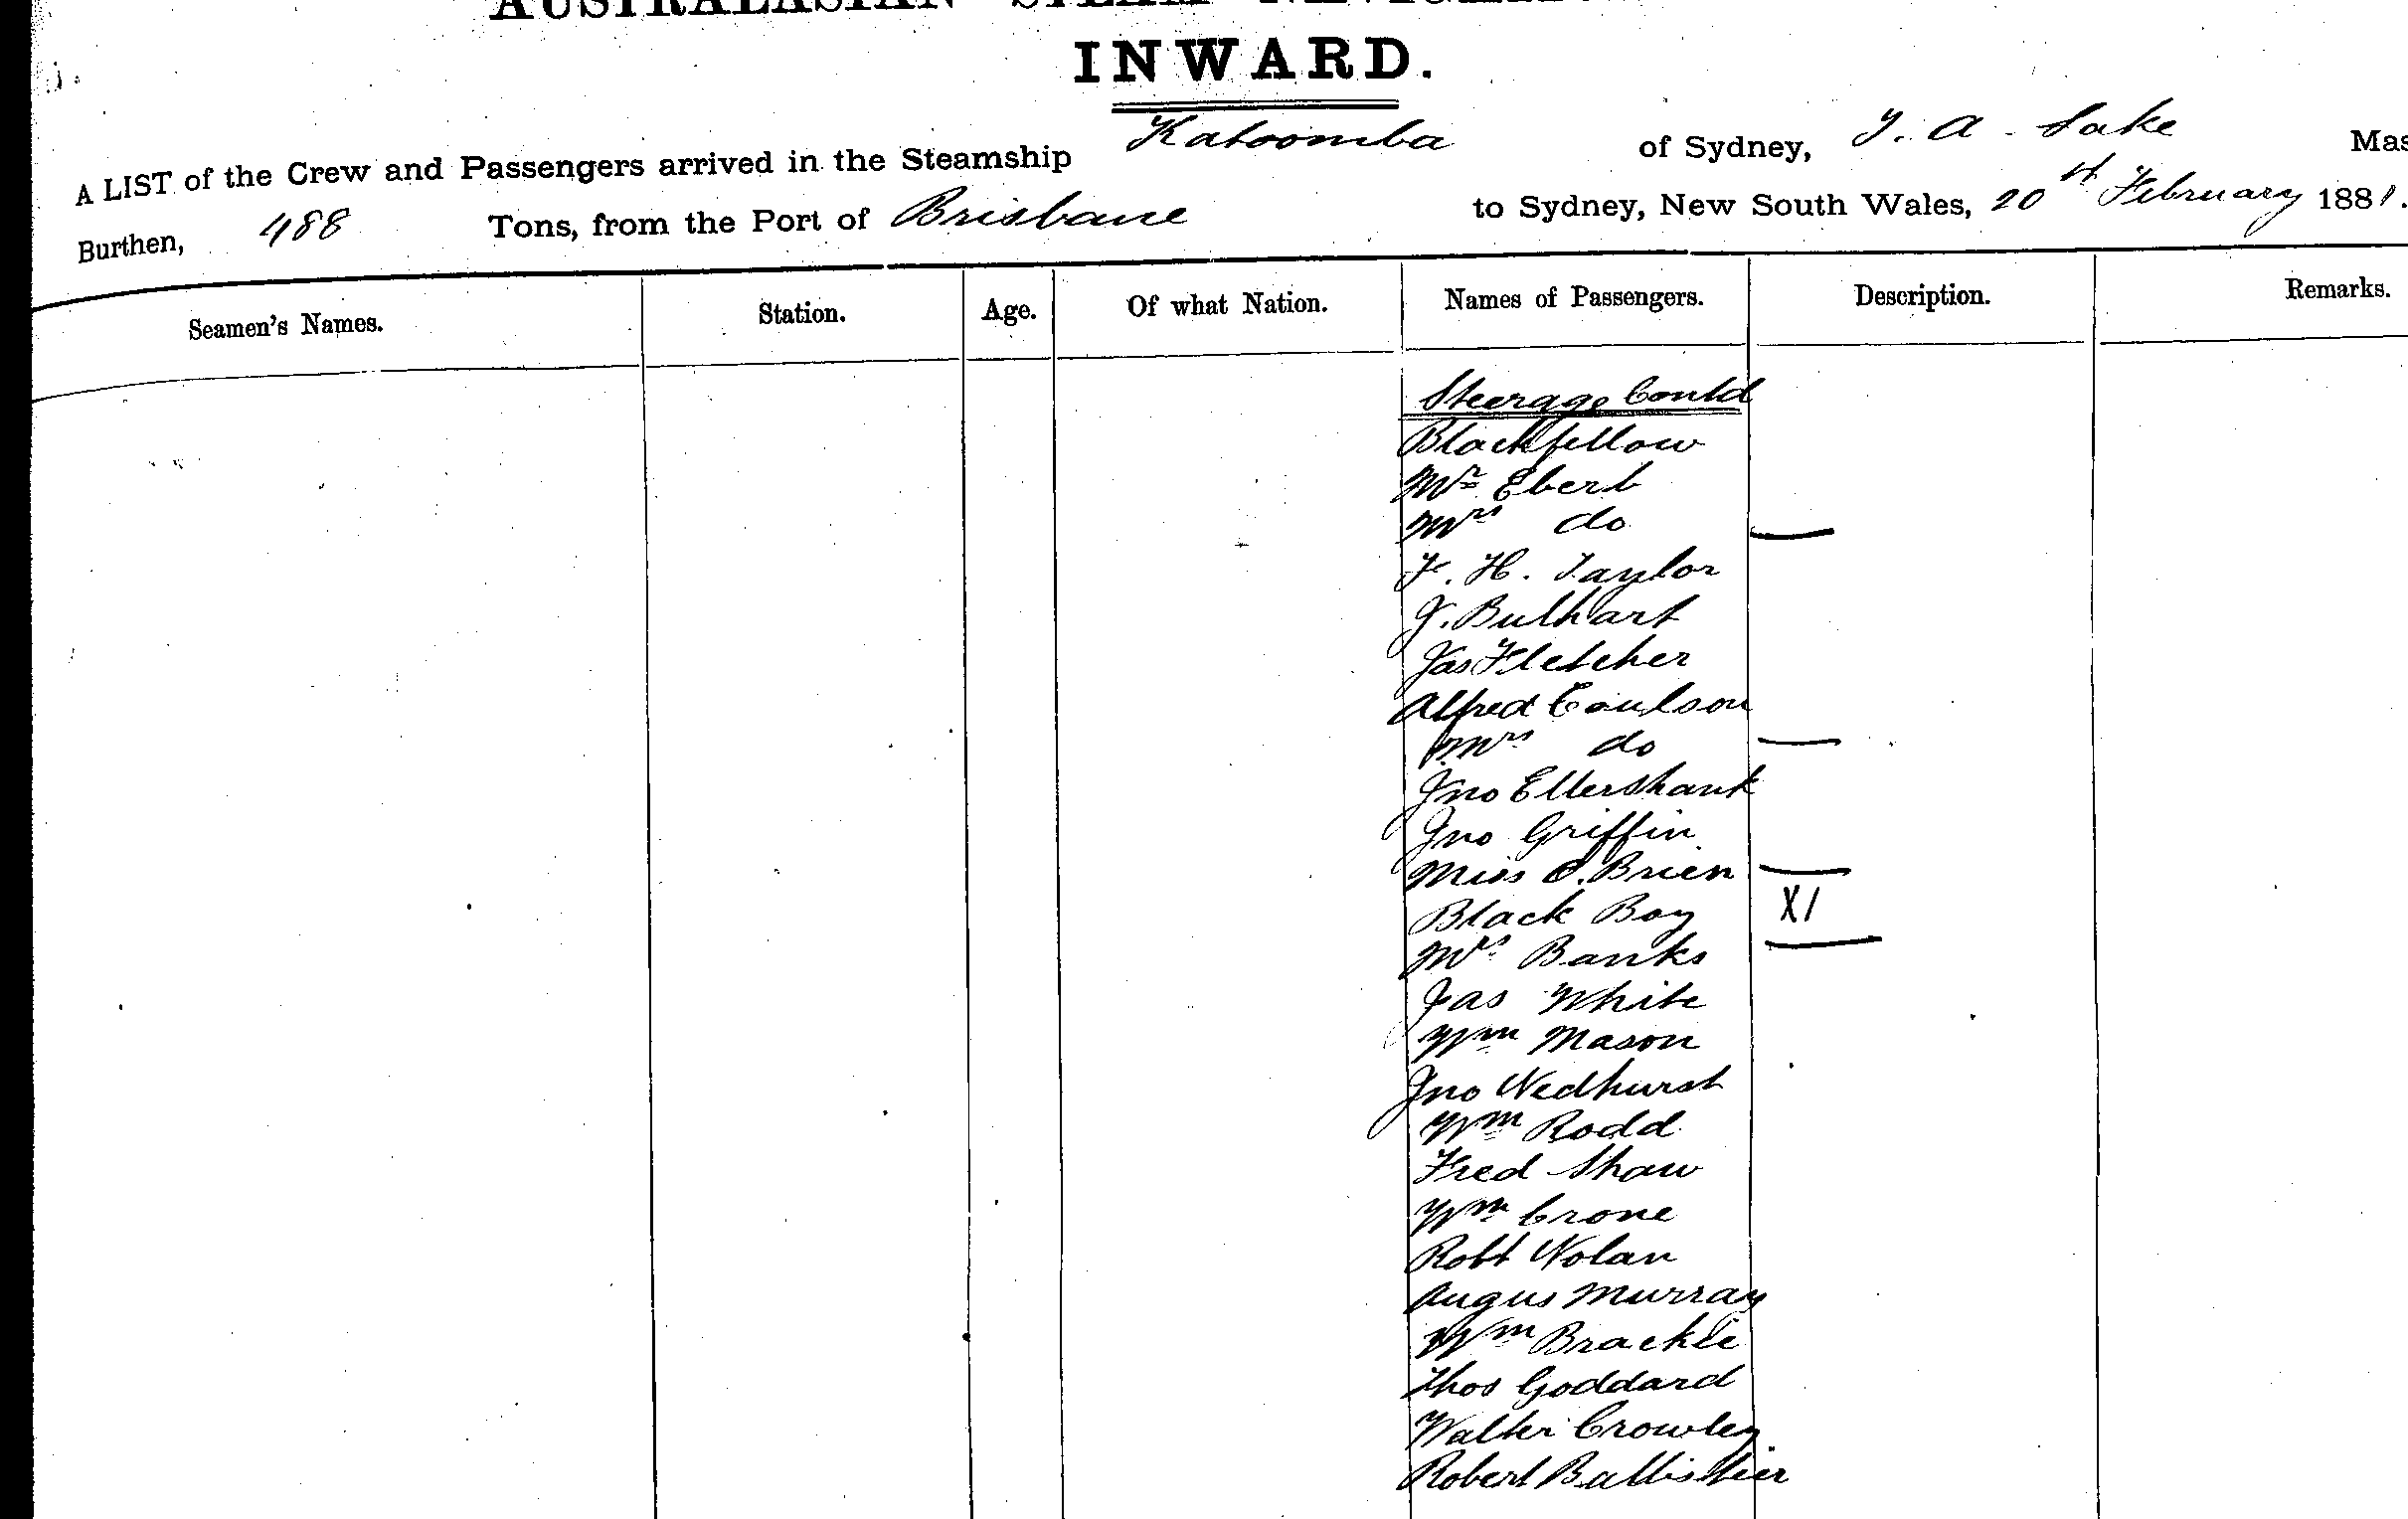 AUSTRALASIAN STEAM
INWARD.
A LIST of the Crew and Passengers arrived in the Steamship Katoomba of Sydney, J. A. Lake Mas
Burthen, 488 Tons, from the Port of Brisbane to Sydney, New South Wales, 20th February 1881.
Seamen's Names. Station. Age. Of what Nation. Names of Passengers. Description. Remarks.
Steerage Contd
Blackfellow
Mr Ebert
Mrs do
F. H. Taylor
J. Bulhart
Jas Fletcher
Alfred Coulson
Mrs do
Jno Ellershank
Jno Griffin
Miss O.Brien
Black Boy X/
Mrs Banks
Jas White
Wm Mason
Jno Wedhurst
Wm Rodd
Fred Shaw
Wm Crone
Robt Nolan
Angus Murray
Wm Brackle
Thos Goddard
Walter Crowley
Robert